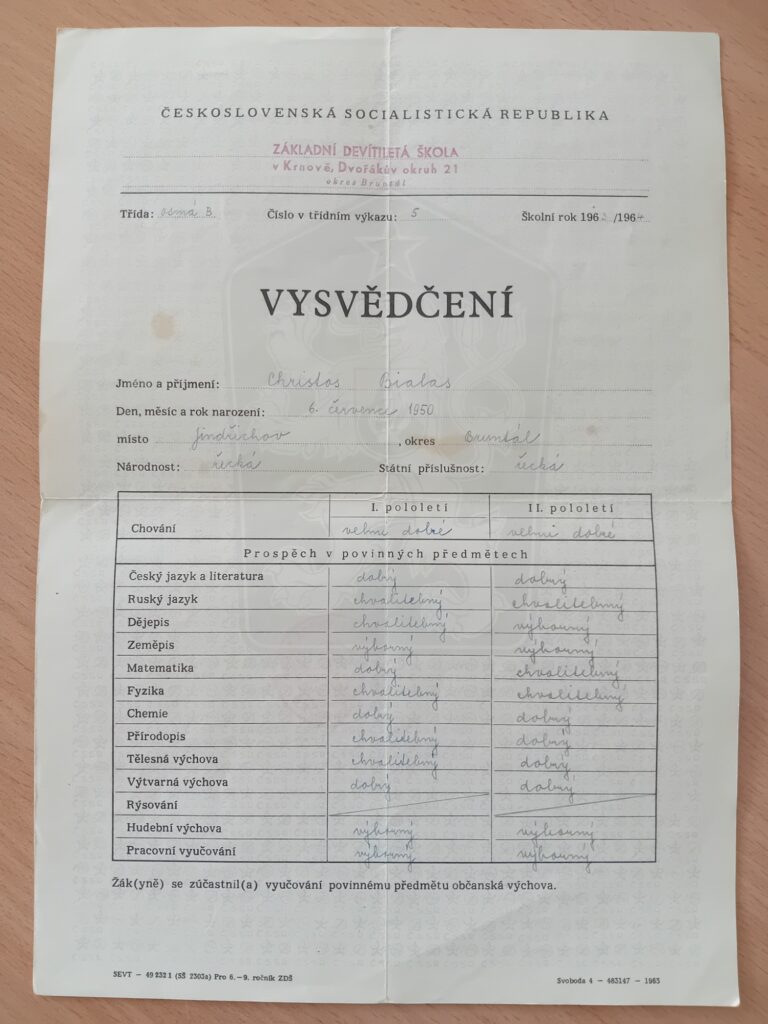 ČESKOSLOVENSKÁ SOCIALISTICKÁ REPUBLIKA
ZÁKLADNÍ DEVÍTILETÁ ŠKOLA
v Krnově, Dvořákův okruh 21
okres Bruntál
Třída: osmá B Číslo v třídním výkazu: 5 Školní rok 1963/1964
VYSVĚDČENÍ
Jméno a příjmení: Christos Bialas
Den, měsíc a rok narození: 6. července 1950
místo Jindřichov, okres Bruntál
Národnost: řecká Státní příslušnost: řecká
I. pololetí II. pololetí
Chování velmi dobré velmi dobré
Prospěch v povinných předmětech
Český jazyk a literatura dobrý dobrý
Ruský jazyk chvalitebný chvalitebný
Dějepis chvalitebný výborný
Zeměpis výborný výborný
Matematika dobrý chvalitebný
Fyzika chvalitebný chvalitebný
Chemie dobrý dobrý
Přírodopis chvalitebný dobrý
Tělesná výchova chvalitebný dobrý
Výtvarná výchova dobrý dobrý
Rýsování
Hudební výchova výborný výborný
Pracovní vyučování výborný výborný
Žák(yně) se zúčastnil(a) vyučování povinnému předmětu občanská výchova.
SEVT – 49 232 1 (SŠ 2303a) Pro 6.–9. ročník ZDŠ Svoboda 4 – 483147 – 1963